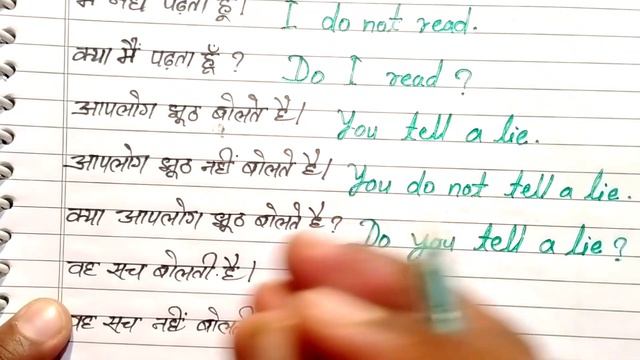 नहीं पढ़ता हूँ। I do not read.
क्या मैं पढ़ता हूँ ? Do I read ?
आपलोग झूठ बोलते है। You tell a lie.
आपलोग झूठ नहीं बोलते है। You do not tell a lie.
क्या आपलोग झूठ बोलते है ? Do you tell a lie ?
वह सच बोलती है।
वह सच नहीं